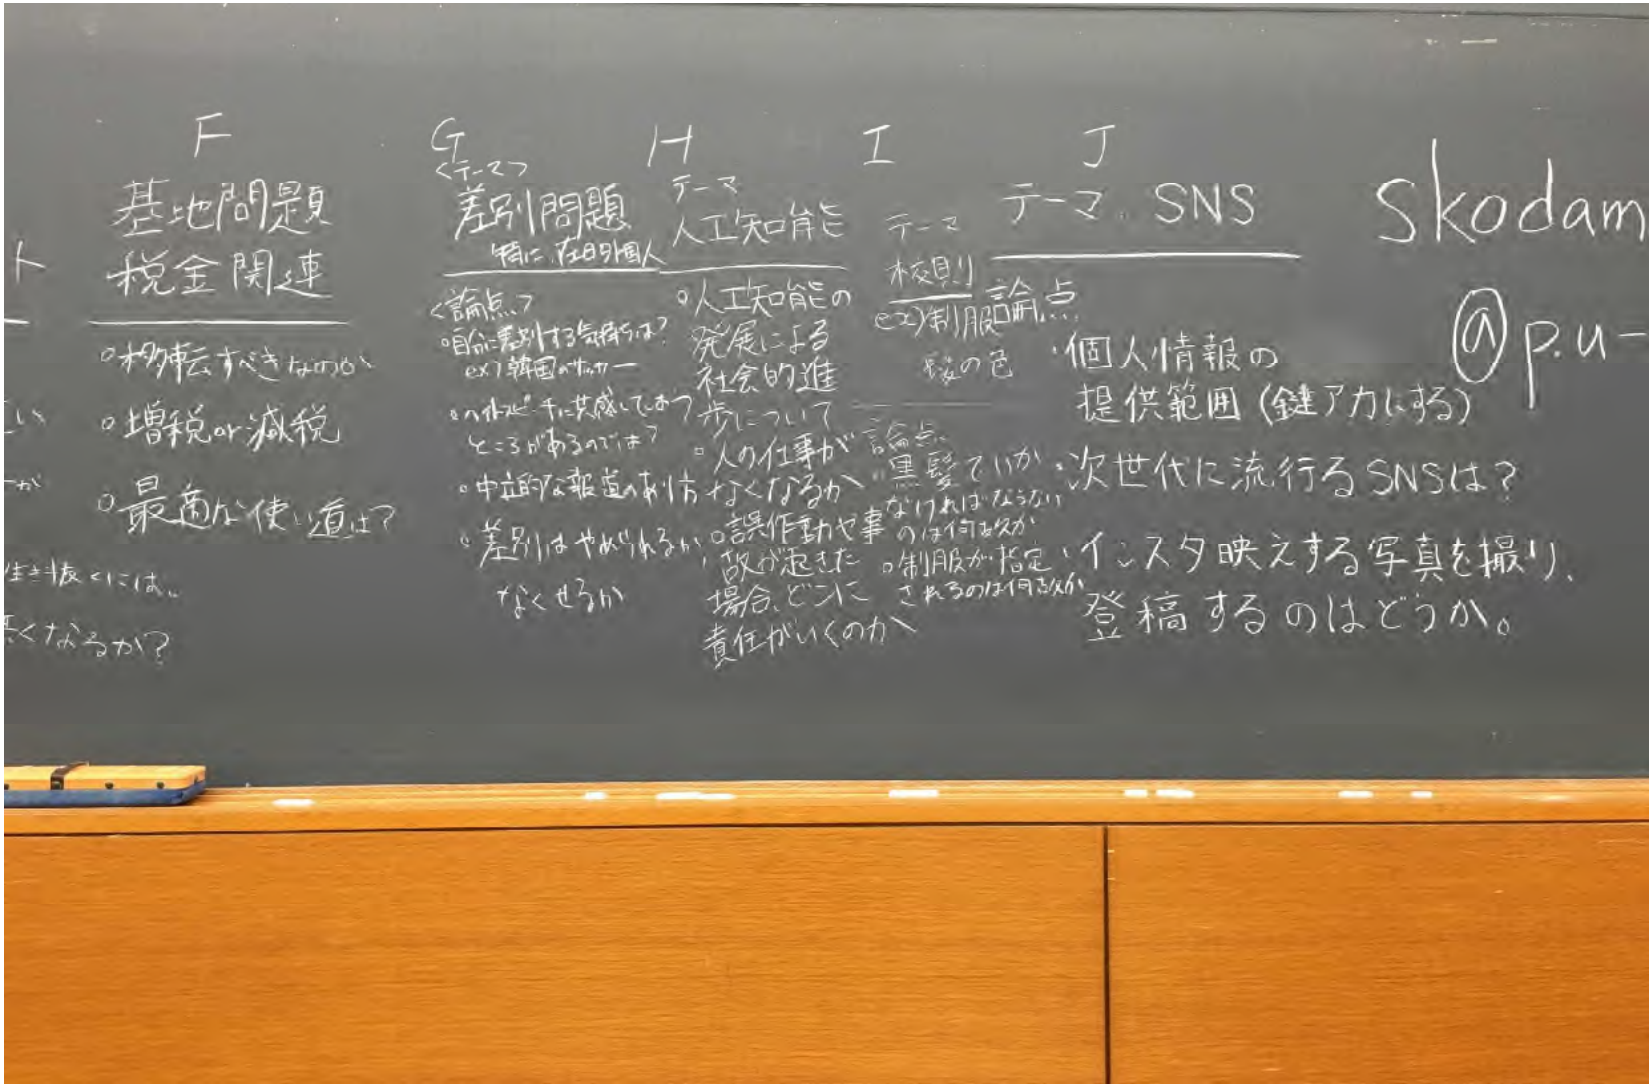 ト
F
基地問題
税金関連
○移転すべきなのか
○増税or減税
○最適な使い道は?
生き抜くには、
くなるか?
G
<テーマ>
差別問題
特に、在日外国人
<論点>
○自分に差別する気持ちは?
ex) 韓国のサッカー
○ヘイトスピーチに共感してしまう
ところがあるのでは?
○中立的な報道のあり方
○差別はやめられるか、
なくせるか
H
テーマ
人工知能
○人工知能の
発展による
社会的進
歩について
○人の仕事が
なくなるか
○誤作動や事
故が起きた
場合、どこに
責任がいくのか
I
テーマ
校則
ex)制服
髪の色
論点
○黒髪でいか
なければならない
のは何故か
○制服が指定
されるのは何故か
J
テーマ SNS
論点
・個人情報の
提供範囲(鍵アカにする)
・次世代に流行るSNSは?
・インスタ映えする写真を撮り、
登稿するのはどうか。
skodam
@p.u-